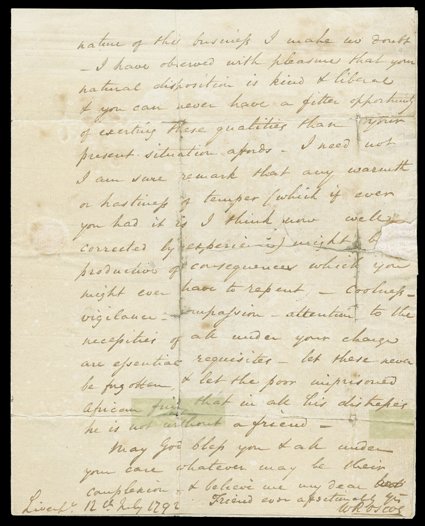 nature of this business I make no doubt
- I have observed with pleasure that your
natural disposition is kind & liberal
& you can never have a fitter opportunity
of exerting these qualities than your
present situation affords - I need not
I am sure remark that any warmth
or hastiness of temper (which if ever
you had it is I think now well
corrected by experience) might be
productive of consequences which you
might ever have to repent - Coolness -
vigilance - compassion - attention to the
necessities of all under your charge
are essential requisites - let these never
be forgotten & let the poor imprisoned
African find that in all his distresses
he is not without a friend -
May God bless you & all under
your care whatever may be their
complexion & believe me my dear
Friend ever affectionately yrs
Liverpl. 12th July 1792 W Roscoe